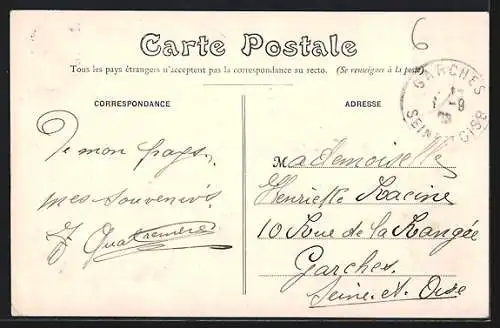 6
Carte Postale
Tous les pays étrangers n'acceptent pas la correspondance au recto. (Se renseigner à la poste)
CORRESPONDANCE
De mon pays,
mes souvenirs
Quatremères
ADRESSE
GARCHES
SEINE
Mademoiselle
Henriette Racine
10 Rue de la Rangée
Garches.
Seine-et-Oise